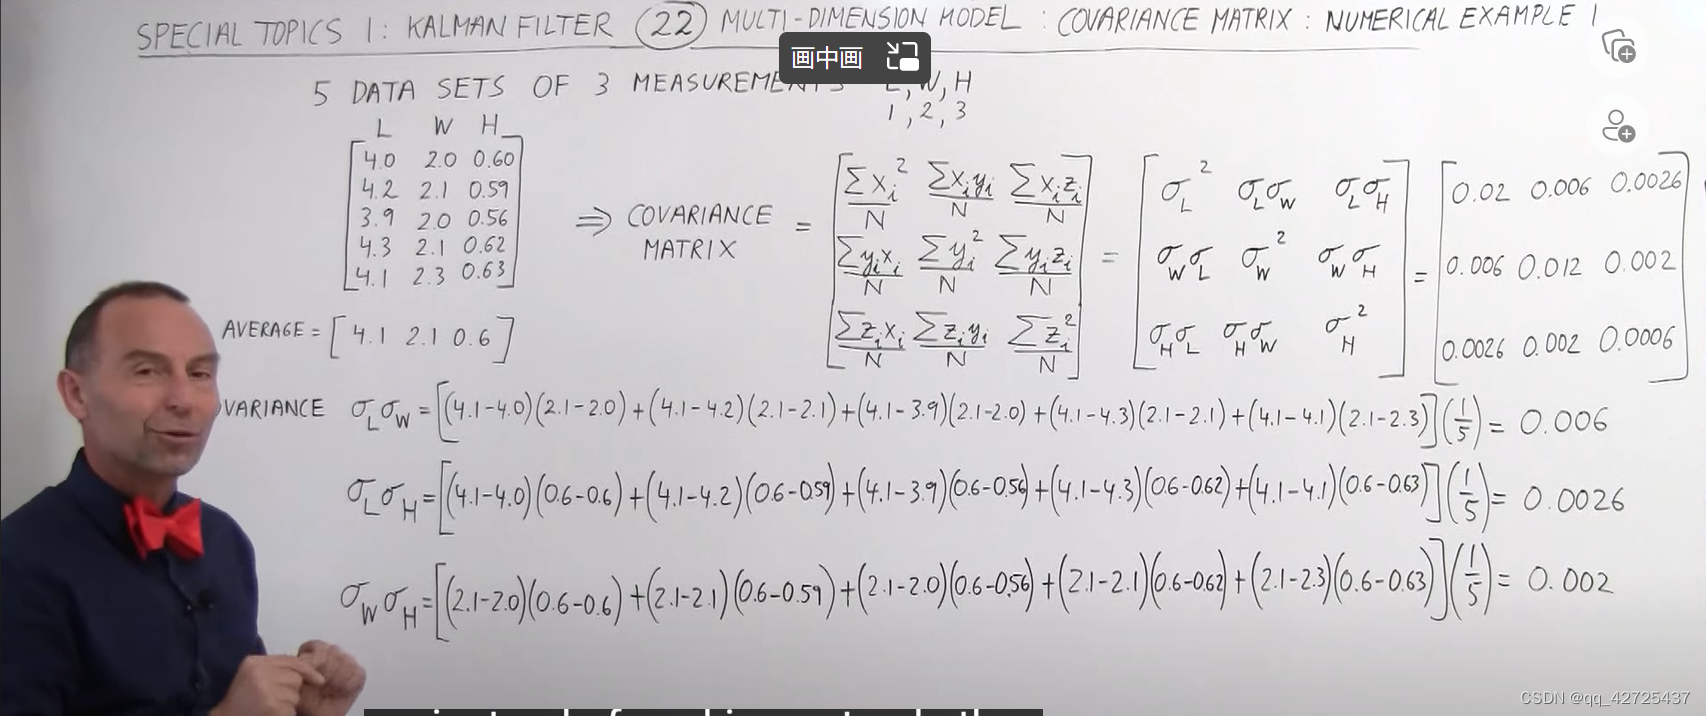 SPECIAL TOPICS 1: KALMAN FILTER (22) MULTI-DIMENSION MODEL : COVARIANCE MATRIX : NUMERICAL EXAMPLE 1
画中画
5 DATA SETS OF 3 MEASUREMENTS L, W, H
1, 2, 3
L W H
4.0 2.0 0.60
4.2 2.1 0.59
3.9 2.0 0.56
4.3 2.1 0.62
4.1 2.3 0.63
⇒ COVARIANCE MATRIX =
[ Σxᵢ²/N Σxᵢyᵢ/N Σxᵢzᵢ/N
Σyᵢxᵢ/N Σyᵢ²/N Σyᵢzᵢ/N
Σzᵢxᵢ/N Σzᵢyᵢ/N Σzᵢ²/N ]
= [ σ_L² σ_Lσ_W σ_Lσ_H
σ_Wσ_L σ_W² σ_Wσ_H
σ_Hσ_L σ_Hσ_W σ_H² ]
= [ 0.02 0.006 0.0026
0.006 0.012 0.002
0.0026 0.002 0.0006 ]
AVERAGE = [ 4.1 2.1 0.6 ]
VARIANCE σ_Lσ_W = [(4.1-4.0)(2.1-2.0)+(4.1-4.2)(2.1-2.1)+(4.1-3.9)(2.1-2.0)+(4.1-4.3)(2.1-2.1)+(4.1-4.1)(2.1-2.3)](1/5) = 0.006
σ_Lσ_H = [(4.1-4.0)(0.6-0.6)+(4.1-4.2)(0.6-0.59)+(4.1-3.9)(0.6-0.56)+(4.1-4.3)(0.6-0.62)+(4.1-4.1)(0.6-0.63)](1/5) = 0.0026
σ_Wσ_H = [(2.1-2.0)(0.6-0.6)+(2.1-2.1)(0.6-0.59)+(2.1-2.0)(0.6-0.56)+(2.1-2.1)(0.6-0.62)+(2.1-2.3)(0.6-0.63)](1/5) = 0.002
CSDN @qq_42725437